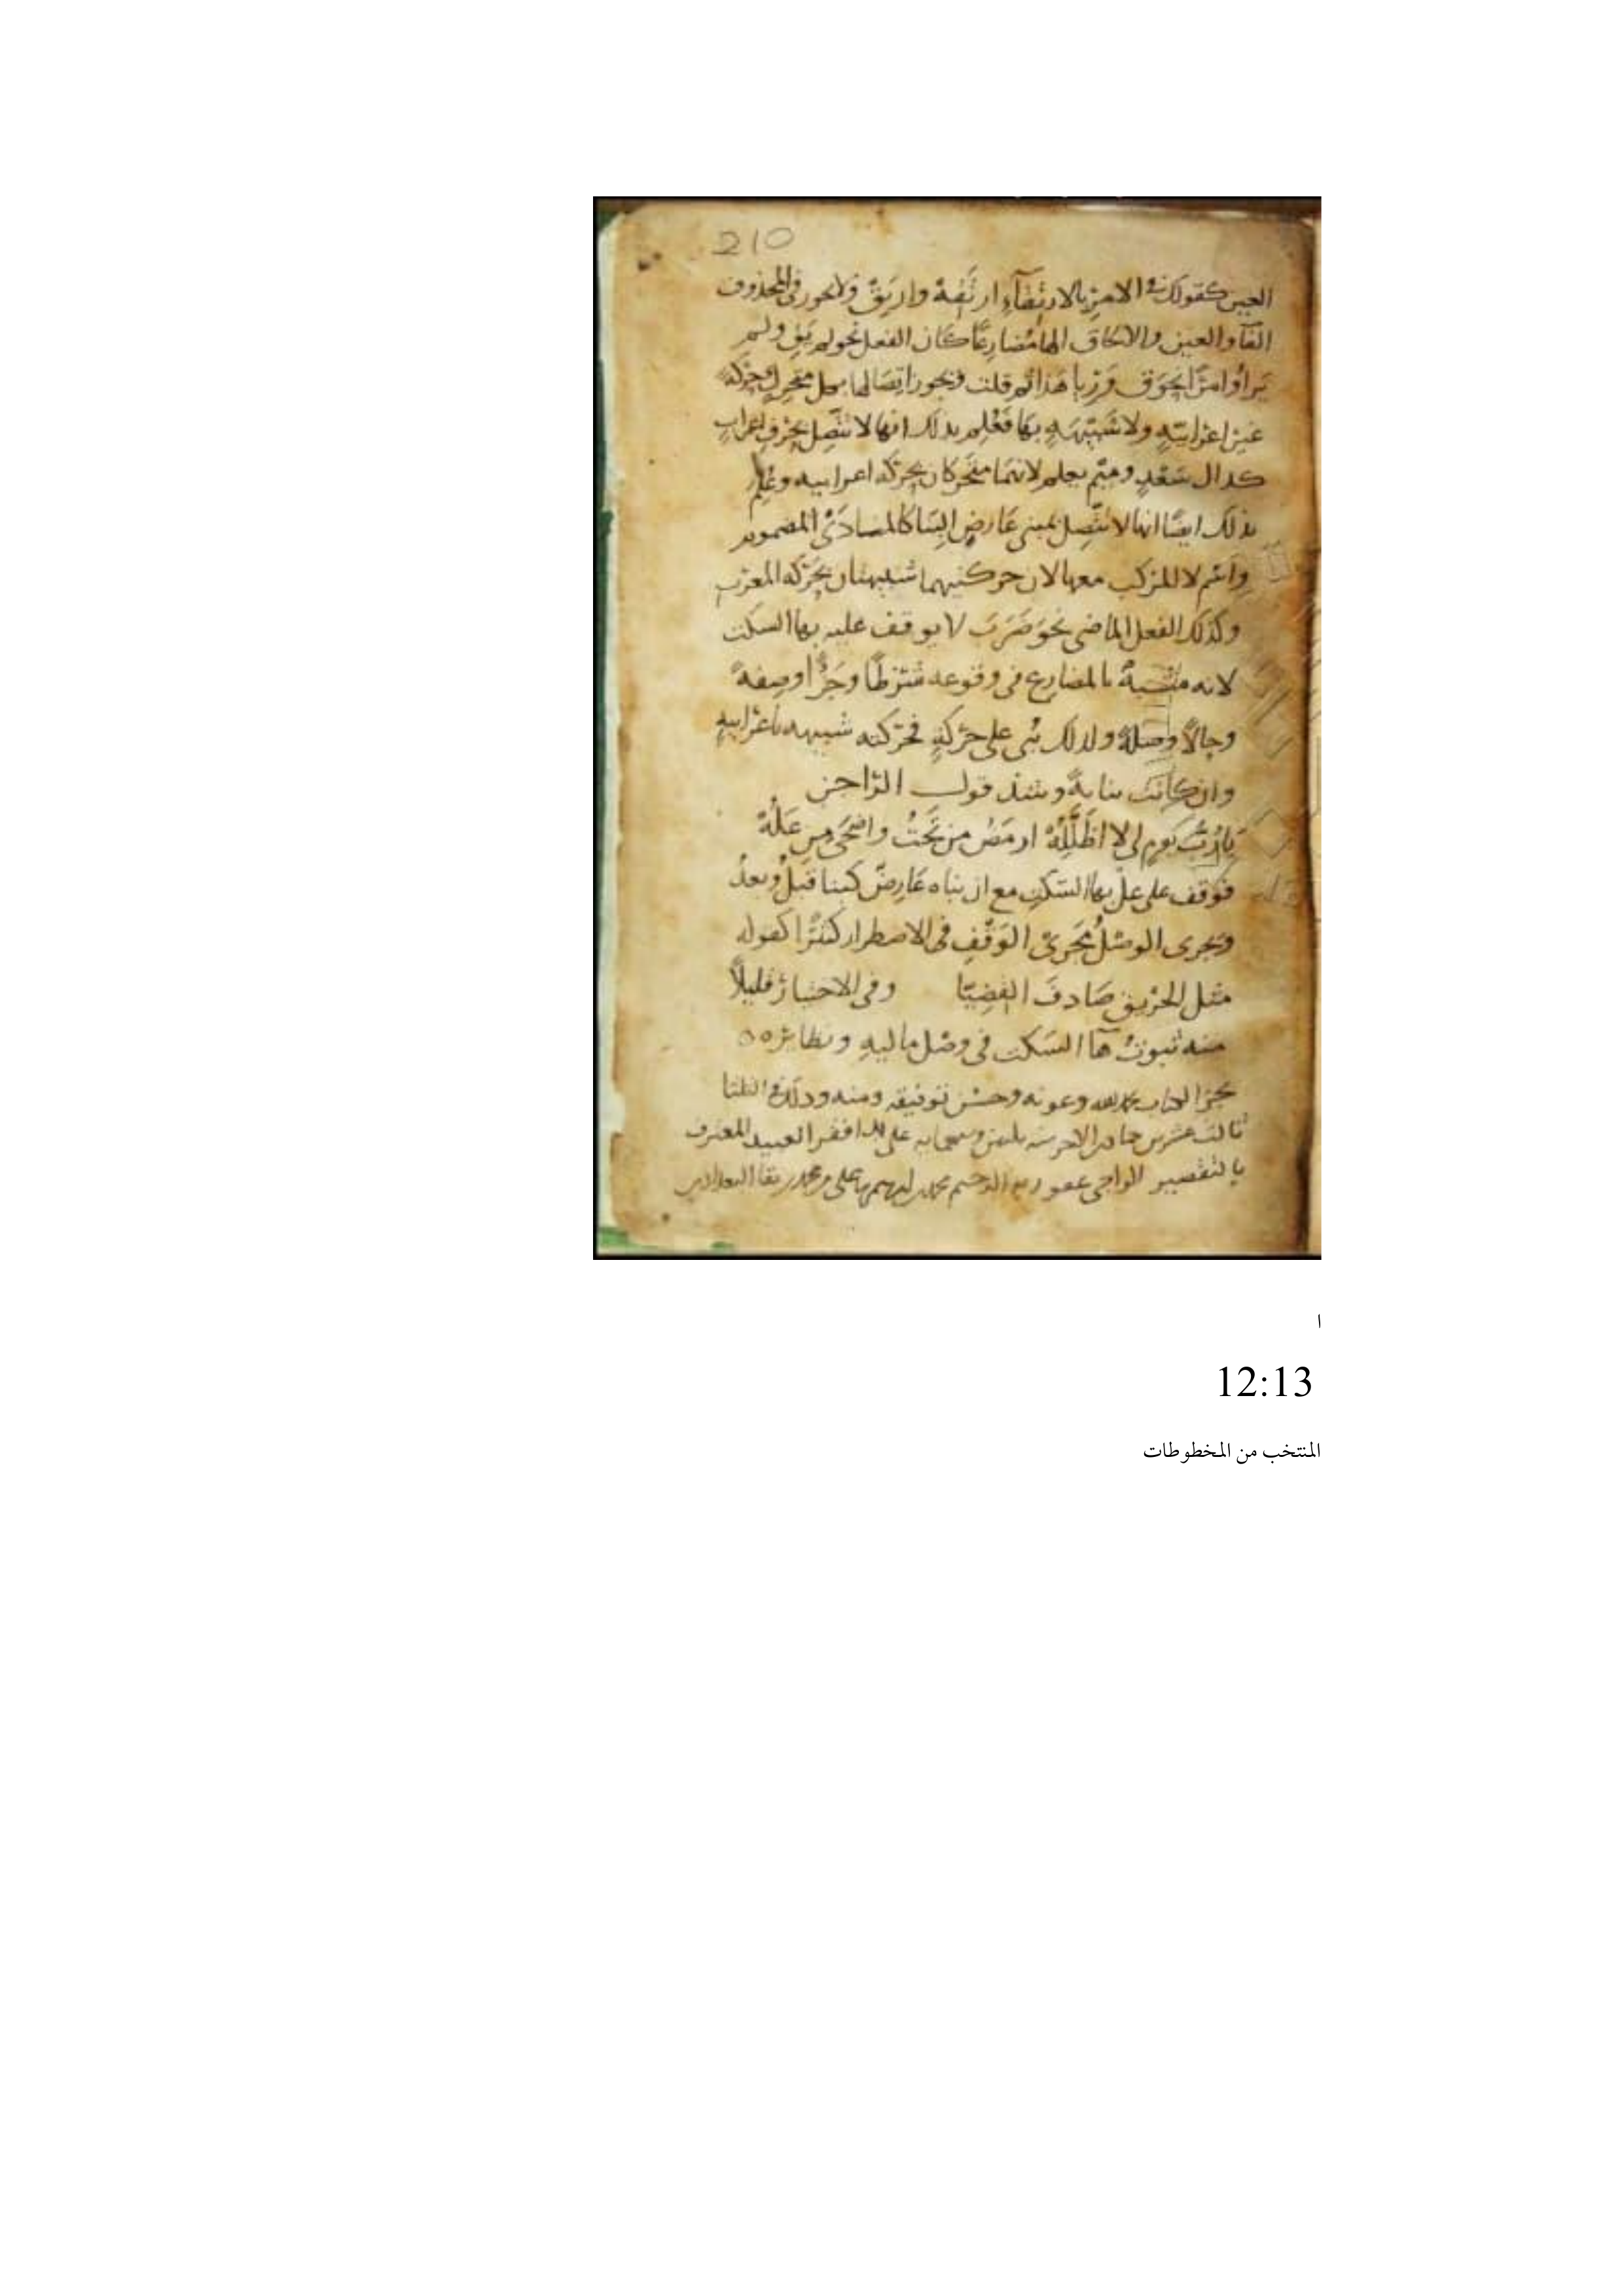 210
العين كقولك في الامر بالارتقاء ارتقه وارتق ولا يجوز في المحذوف
الفاء والعين والا كاف الها مضارعا كان الفعل نحو لم يق ولم
ير او امرا نحو ق ور يا هذا ثم قلت ويجوز اتصالها بكل متحرك حركة
غير اعرابية ولا شبيهة بها فعلم بذلك انها لا تتصل بحرف اعراب
كدال سعد وميم يعلم لانهما متحركان بحركة اعرابيه وعلم
بذلك ايضا انها لا تتصل بمبنى عارض البنا كالمنادى المضموم
واسم لا المركب معها لان حركتيهما شبيهتان بحركة المعرب
وكذلك الفعل الماضي نحو ضرب لا يوقف عليه بها السكت
لانه مشبه بالمضارع في وقوعه شرطا وجزا وصفة
وحالا وصلة ولذلك بنى على حركة فحركته شبيهه باعرابية
وان كانت بنايه وشذ قول الراجز
يا رب يوم لي لا اظلله ارمض من تحت واضحى من عله
فوقف على عل بها السكت مع ان بناه عارض كبنا قبل وبعد
ويجرى الوصل مجرى الوقف في الاضطرار كثيرا كقوله
مثل الحريق صادف القصبا وفي الاختيار قليلا
منه ثبوت هآ السكت في وصل ماليه ونظايره
نجز الكتاب بحمد الله وعونه وحسن توفيقه ومنه وذلك في الثلثا
ثالث عشر من جمادى الاخر سنه افقر العبيد المعترف
بالتقصير الراجى عفو ربه الرحيم محمد بن على بن محمد
ا
12:13
المنتخب من المخطوطات